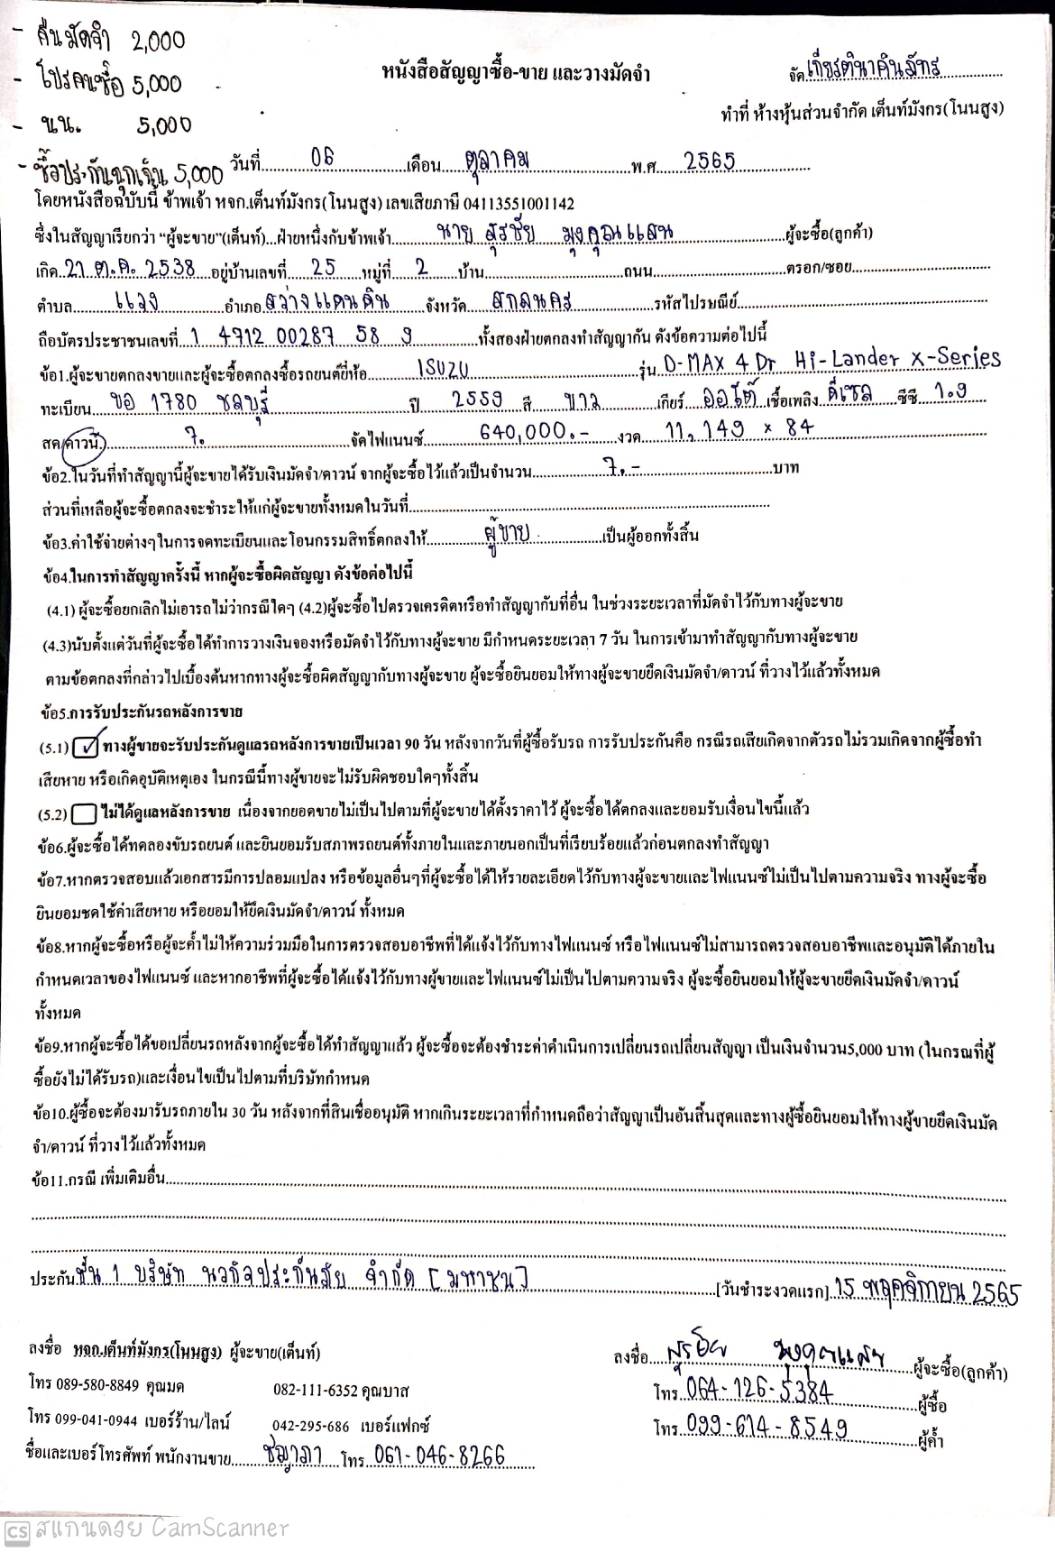 - คืนมัดจำ 2,000
- โปรคนซื้อ 5,000
- นน. 5,000
- ซื้อประกันฉุกเฉิน 5,000
หนังสือสัญญาซื้อ-ขาย และวางมัดจำ
จัด เกียรตินาคินภัทร
ทำที่ ห้างหุ้นส่วนจำกัด เต็นท์มังกร(โนนสูง)
วันที่ 06 เดือน ตุลาคม พ.ศ 2565
โดยหนังสือฉบับนี้ ข้าพเจ้า หจก.เต็นท์มังกร(โนนสูง) เลขเสียภาษี 04113551001142
ซึ่งในสัญญาเรียกว่า “ผู้จะขาย”(เต็นท์)...ฝ่ายหนึ่งกับข้าพเจ้า นาย สุรชัย มุงคุณแสน ผู้จะซื้อ(ลูกค้า)
เกิด 21 ต.ค. 2538 อยู่บ้านเลขที่ 25 หมู่ที่ 2 บ้าน ถนน ตรอก/ซอย
ตำบล แวง อำเภอ สว่างแดนดิน จังหวัด สกลนคร รหัสไปรษณีย์
ถือบัตรประชาชนเลขที่ 1 4712 00287 58 9 ทั้งสองฝ่ายตกลงทำสัญญากัน ดังข้อความต่อไปนี้
ข้อ1.ผู้จะขายตกลงขายและผู้จะซื้อตกลงซื้อรถยนต์ยี่ห้อ ISUZU รุ่น D-MAX 4 Dr Hi-Lander X-Series
ทะเบียน ขอ 1780 ชลบุรี ปี 2559 สี ขาว เกียร์ ออโต้ เชื้อเพลิง ดีเซล ซีซี 1.9
สด/ดาวน์ 7. จัดไฟแนนซ์ 640,000.- งวด 11,149 x 84
ข้อ2.ในวันที่ทำสัญญานี้ผู้จะขายได้รับเงินมัดจำ/ดาวน์ จากผู้จะซื้อไว้แล้วเป็นจำนวน 7.- บาท
ส่วนที่เหลือผู้จะซื้อตกลงจะชำระให้แก่ผู้จะขายทั้งหมดในวันที่
ข้อ3.ค่าใช้จ่ายต่างๆในการจดทะเบียนและโอนกรรมสิทธิ์ตกลงให้ ผู้ขาย เป็นผู้ออกทั้งสิ้น
ข้อ4.ในการทำสัญญาครั้งนี้ หากผู้จะซื้อผิดสัญญา ดังข้อต่อไปนี้
(4.1) ผู้จะซื้อยกเลิกไม่เอารถไม่ว่ากรณีใดๆ (4.2)ผู้จะซื้อไปตรวจเครดิตหรือทำสัญญากับที่อื่น ในช่วงระยะเวลาที่มัดจำไว้กับทางผู้จะขาย
(4.3)นับตั้งแต่วันที่ผู้จะซื้อได้ทำการวางเงินจองหรือมัดจำไว้กับทางผู้จะขาย มีกำหนดระยะเวลา 7 วัน ในการเข้ามาทำสัญญากับทางผู้จะขาย
ตามข้อตกลงที่กล่าวไปเบื้องต้นหากทางผู้จะซื้อผิดสัญญากับทางผู้จะขาย ผู้จะซื้อยินยอมให้ทางผู้จะขายยึดเงินมัดจำ/ดาวน์ ที่วางไว้แล้วทั้งหมด
ข้อ5.การรับประกันรถหลังการขาย
(5.1) ทางผู้ขายจะรับประกันดูแลรถหลังการขายเป็นเวลา 90 วัน หลังจากวันที่ผู้ซื้อรับรถ การรับประกันคือ กรณีรถเสียเกิดจากตัวรถไม่รวมเกิดจากผู้ซื้อทำ
เสียหาย หรือเกิดอุบัติเหตุเอง ในกรณีนี้ทางผู้ขายจะไม่รับผิดชอบใดๆทั้งสิ้น
(5.2) ไม่ได้ดูแลหลังการขาย เนื่องจากยอดขายไม่เป็นไปตามที่ผู้จะขายได้ตั้งราคาไว้ ผู้จะซื้อได้ตกลงและยอมรับเงื่อนไขนี้แล้ว
ข้อ6.ผู้จะซื้อได้ทดลองขับรถยนต์ และยินยอมรับสภาพรถยนต์ทั้งภายในและภายนอกเป็นที่เรียบร้อยแล้วก่อนตกลงทำสัญญา
ข้อ7.หากตรวจสอบแล้วเอกสารมีการปลอมแปลง หรือข้อมูลอื่นๆที่ผู้จะซื้อได้ให้รายละเอียดไว้กับทางผู้จะขายและไฟแนนซ์ไม่เป็นไปตามความจริง ทางผู้จะซื้อ
ยินยอมชดใช้ค่าเสียหาย หรือยอมให้ยึดเงินมัดจำ/ดาวน์ ทั้งหมด
ข้อ8.หากผู้จะซื้อหรือผู้จะค้ำไม่ให้ความร่วมมือในการตรวจสอบอาชีพที่ได้แจ้งไว้กับทางไฟแนนซ์ หรือไฟแนนซ์ไม่สามารถตรวจสอบอาชีพและอนุมัติได้ภายใน
กำหนดเวลาของไฟแนนซ์ และหากอาชีพที่ผู้จะซื้อได้แจ้งไว้กับทางผู้ขายและไฟแนนซ์ไม่เป็นไปตามความจริง ผู้จะซื้อยินยอมให้ผู้จะขายยึดเงินมัดจำ/ดาวน์
ทั้งหมด
ข้อ9.หากผู้จะซื้อได้ขอเปลี่ยนรถหลังจากผู้จะซื้อได้ทำสัญญาแล้ว ผู้จะซื้อจะต้องชำระค่าดำเนินการเปลี่ยนรถเปลี่ยนสัญญา เป็นเงินจำนวน5,000 บาท (ในกรณที่ผู้
ซื้อยังไม่ได้รับรถ)และเงื่อนไขเป็นไปตามที่บริษัทกำหนด
ข้อ10.ผู้ซื้อจะต้องมารับรถภายใน 30 วัน หลังจากที่สินเชื่ออนุมัติ หากเกินระยะเวลาที่กำหนดถือว่าสัญญาเป็นอันสิ้นสุดและทางผู้ซื้อยินยอมให้ทางผู้ขายยึดเงินมัด
จำ/ดาวน์ ที่วางไว้แล้วทั้งหมด
ข้อ11.กรณี เพิ่มเติมอื่น
ประกัน ชั้น 1 บริษัท นวกิจประกันภัย จำกัด [มหาชน] [วันชำระงวดแรก] 15 พฤศจิกายน 2565
ลงชื่อ หจก.เต็นท์มังกร(โนนสูง) ผู้จะขาย(เต็นท์)
ลงชื่อ สุรชัย มุงคุณแสน ผู้จะซื้อ(ลูกค้า)
โทร 089-580-8849 คุณมด 082-111-6352 คุณบาส
โทร 064-126-5384 ผู้ซื้อ
โทร 099-041-0944 เบอร์ร้าน/ไลน์ 042-295-686 เบอร์แฟกซ์
โทร 099-614-8549 ผู้ค้ำ
ชื่อและเบอร์โทรศัพท์ พนักงานขาย ชญาภา โทร 061-046-8266
CS สแกนด้วย CamScanner